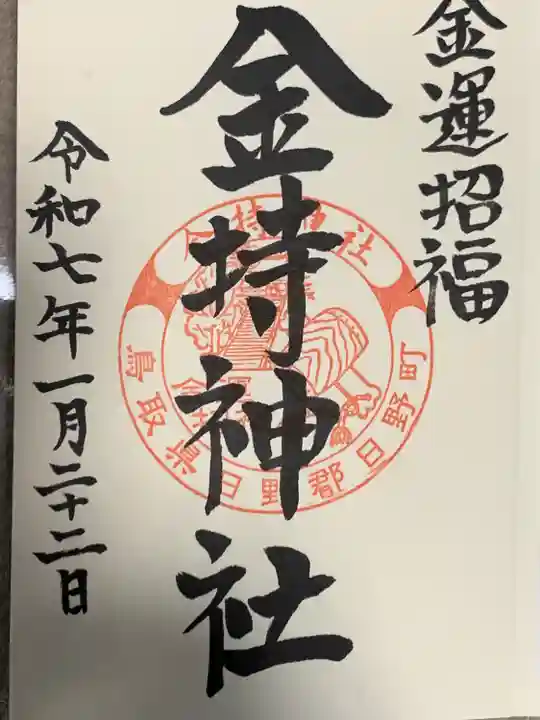 金運招福
金持神社
金持神社
鳥取県日野郡日野町
令和七年一月二十二日